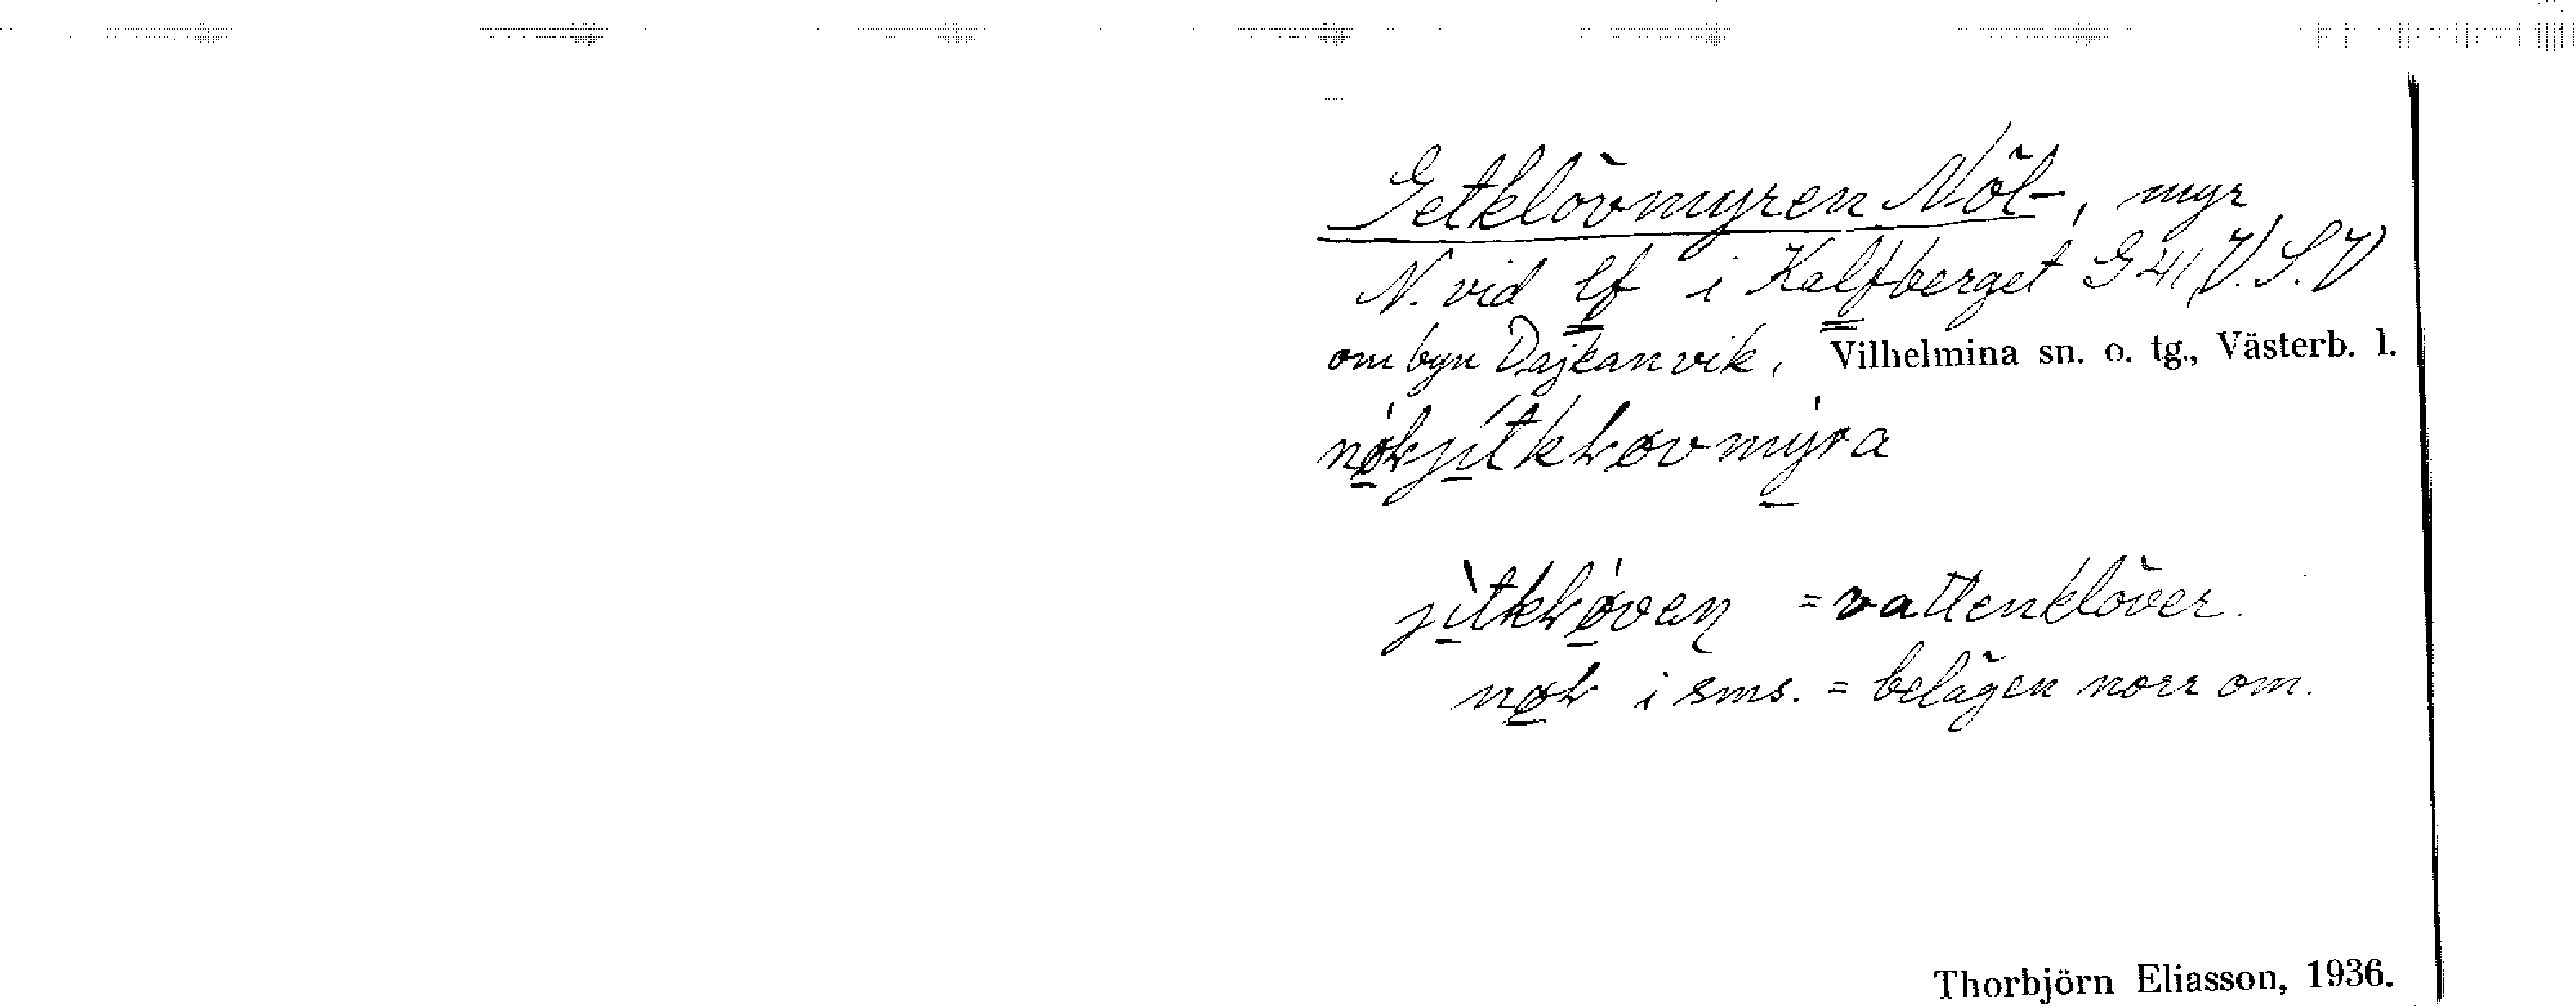 Getklövmyren Nöl-, myr
N. vid lf i Kalfberget G41, V.S.V
om byn Dajkanvik, Vilhelmina sn. o. tg., Västerb. l.
= vattenklöver.
i sms. = belägen norr om.
Thorbjörn Eliasson, 1936.